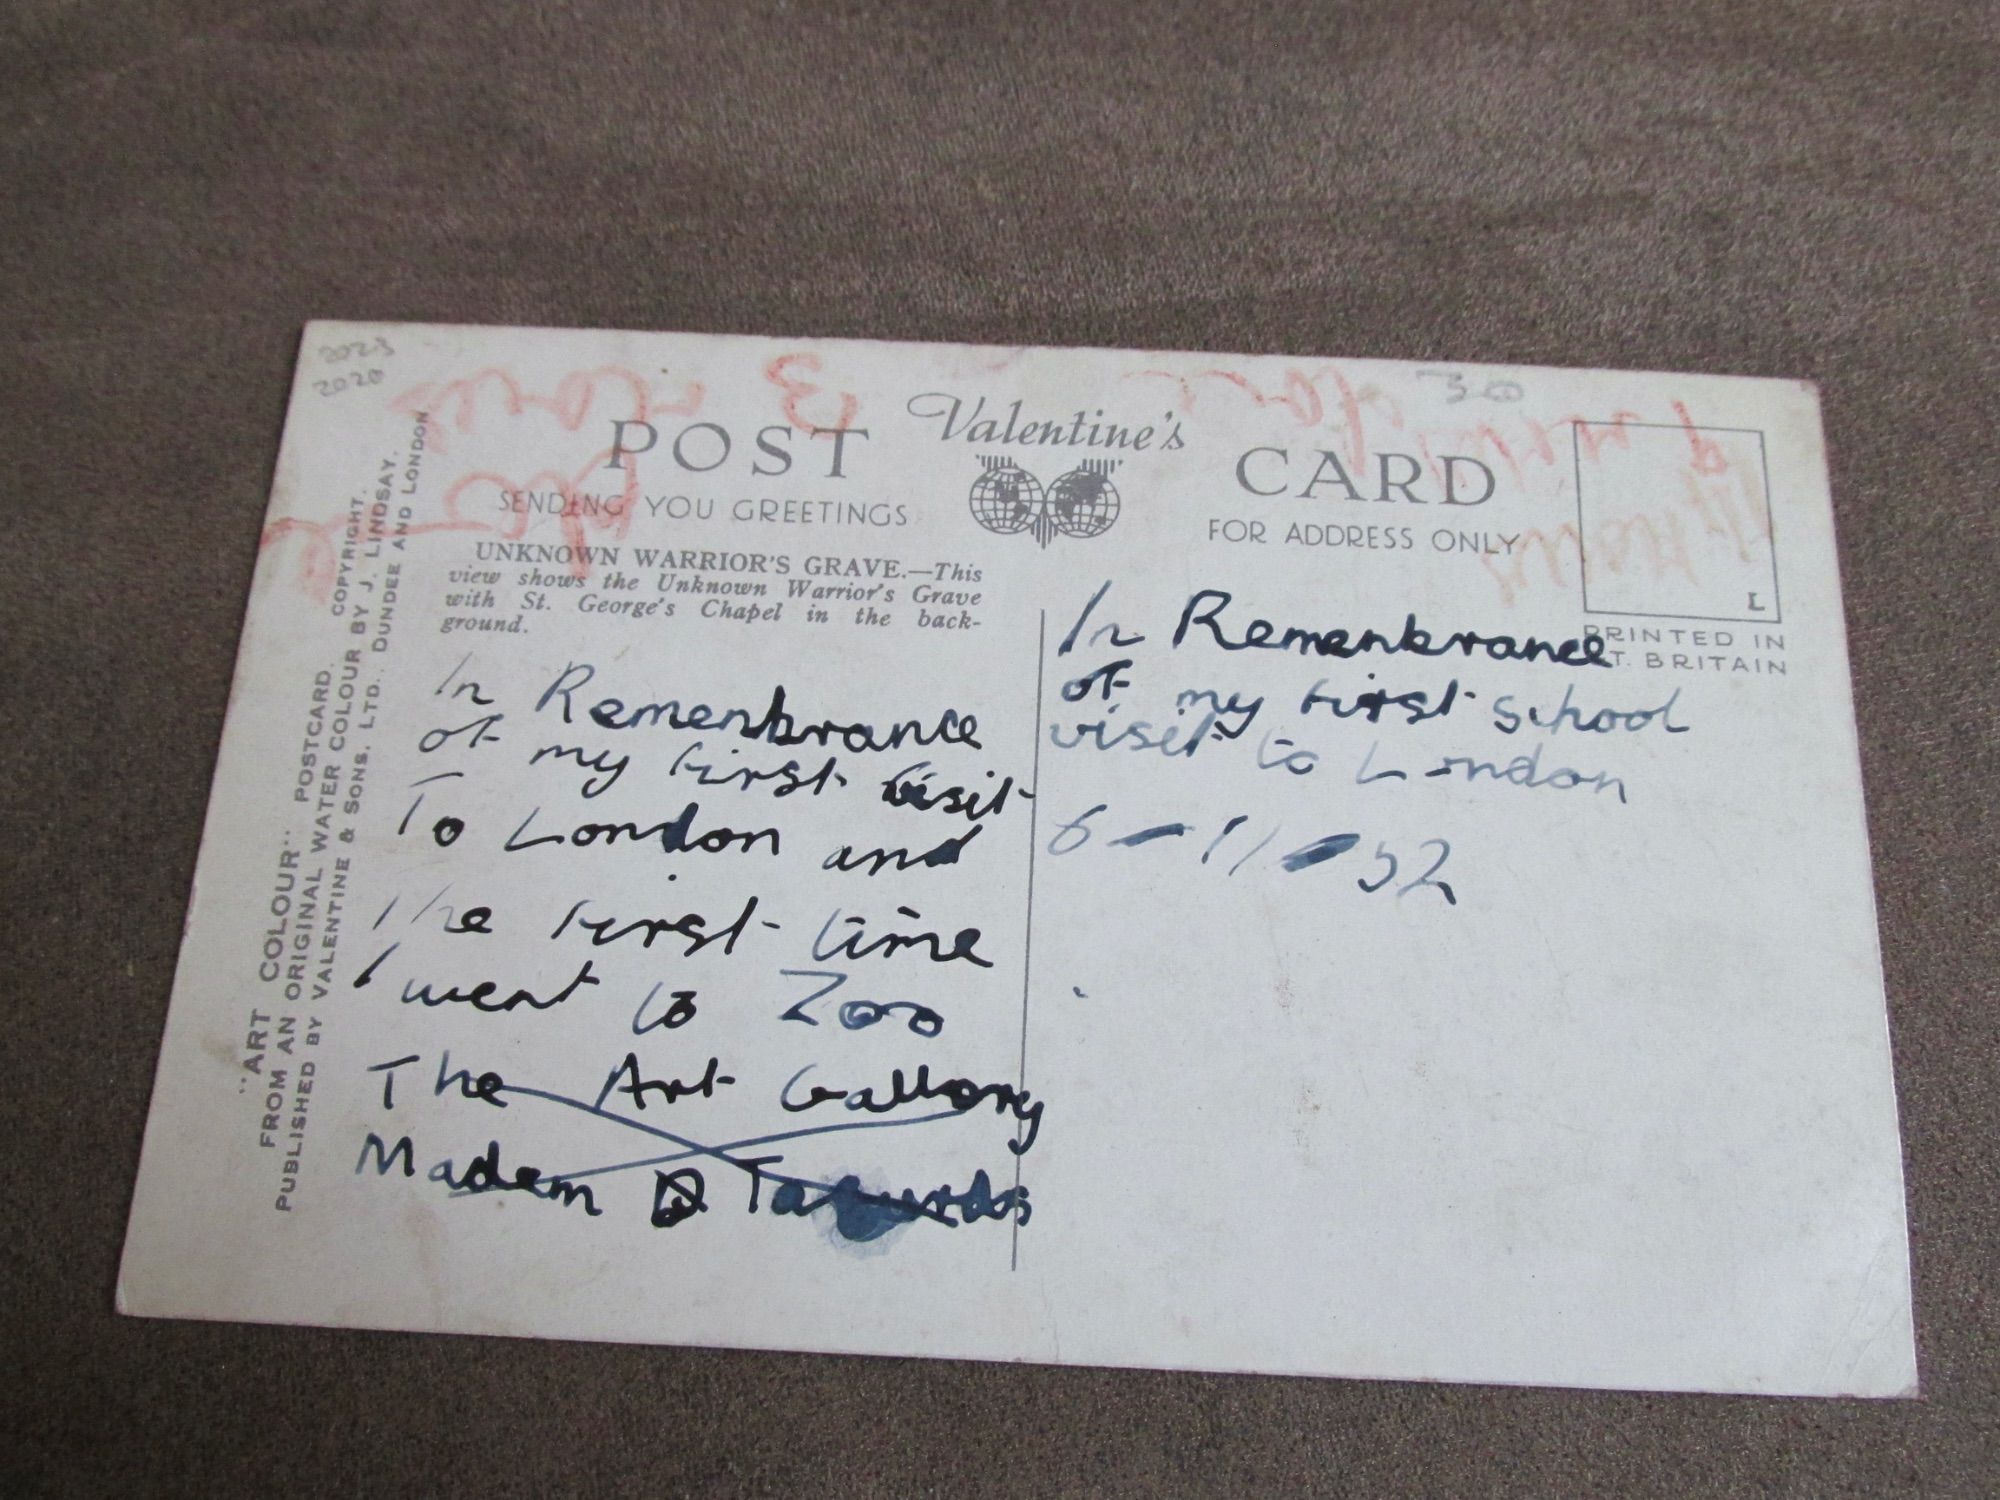 2023
2020
30
Valentine's
POST CARD
SENDING YOU GREETINGS
FOR ADDRESS ONLY
UNKNOWN WARRIOR'S GRAVE.—This
view shows the Unknown Warrior's Grave
with St. George's Chapel in the back-
ground.
L
PRINTED IN
T. BRITAIN
"ART COLOUR" POSTCARD. COPYRIGHT.
FROM AN ORIGINAL WATER COLOUR BY J. LINDSAY.
PUBLISHED BY VALENTINE & SONS, LTD., DUNDEE AND LONDON
In Remenbrance
of my first visit
To London and
The first time
I went to Zoo
The Art Gallory
Madem
In Remenbrance
of my first school
visit to London
6-11-52